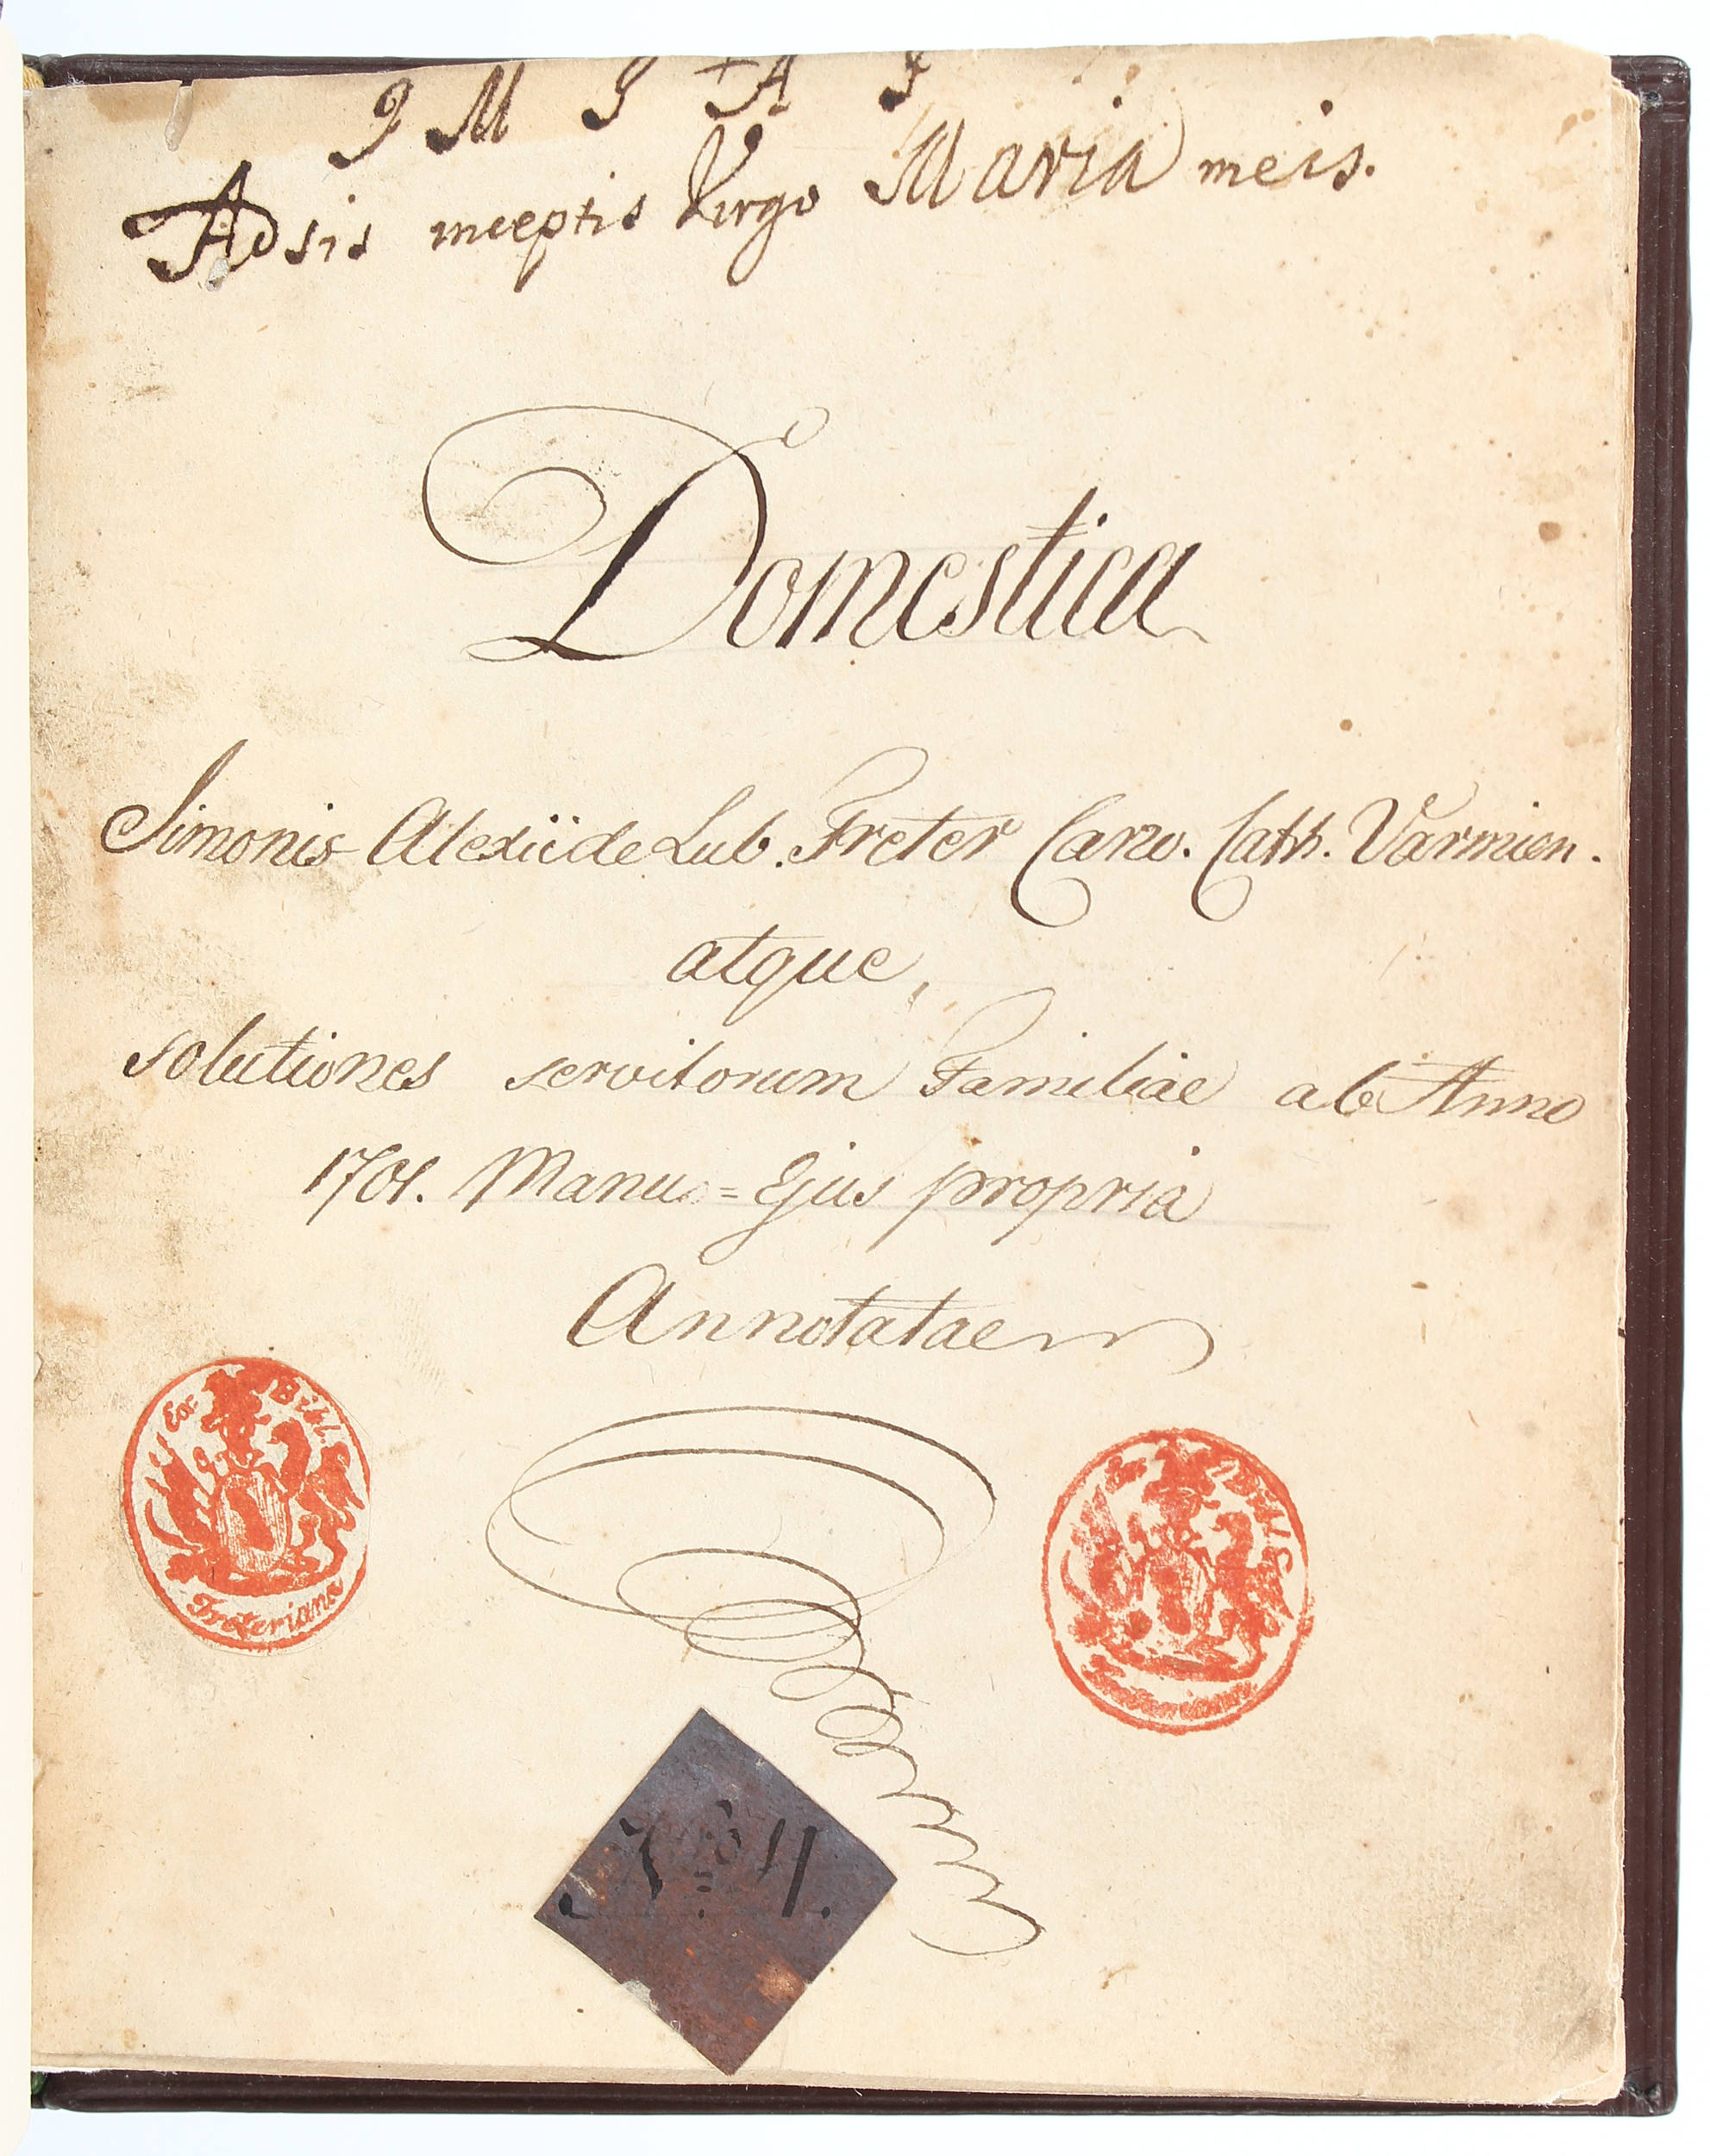 J M J A J
Adsis inceptis Virgo Maria meis.
Domestica
Simonis Alexii de Lub. Freter Cano. Cath. Varmien.
atque
solutiones servitorum Familiae ab Anno
1701. Manu = Ejus propria
Annotatae
Ex Bibl.
Freteriana
Ex Bibl.
No 11.